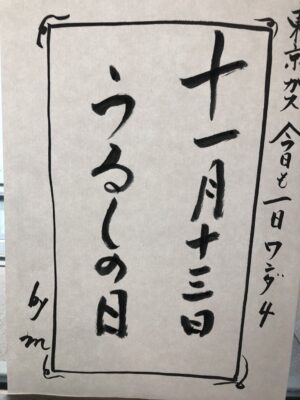 東京ガス 今日も一日ワンダ4
十一月十三日
うるしの日
by m